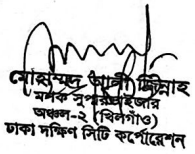 মোহাম্মদ আলী জিন্নাহ
মশক সুপারভাইজার
অঞ্চল-২ (খিলগাঁও)
ঢাকা দক্ষিণ সিটি কর্পোরেশন